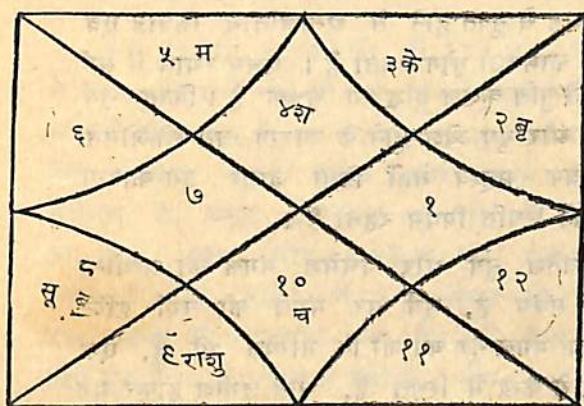 ५ म
३के
४श
६
२बृ
७
१
सू ८
बु
१०
च
१२
९राशु
११